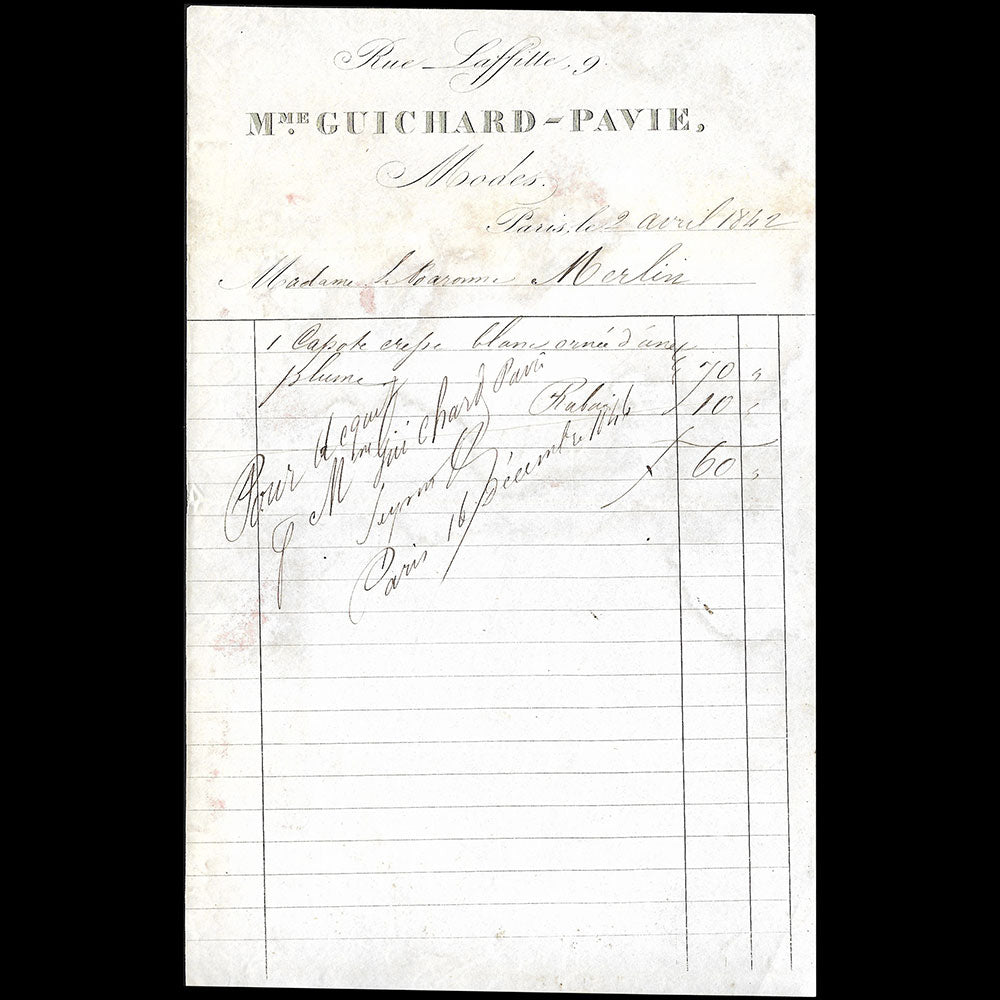 Rue Laffitte, 9.
MME. GUICHARD-PAVIE,
Modes.
Paris, le 2 avril 1842
Madame la Baronne Merlin
1 Capote crêpe blanc ornée d'une
plume 70 "
Rabais 10 "
60 "
Pour acquit
Mme Guichard Pavie
Paris 16 Décembre 1846